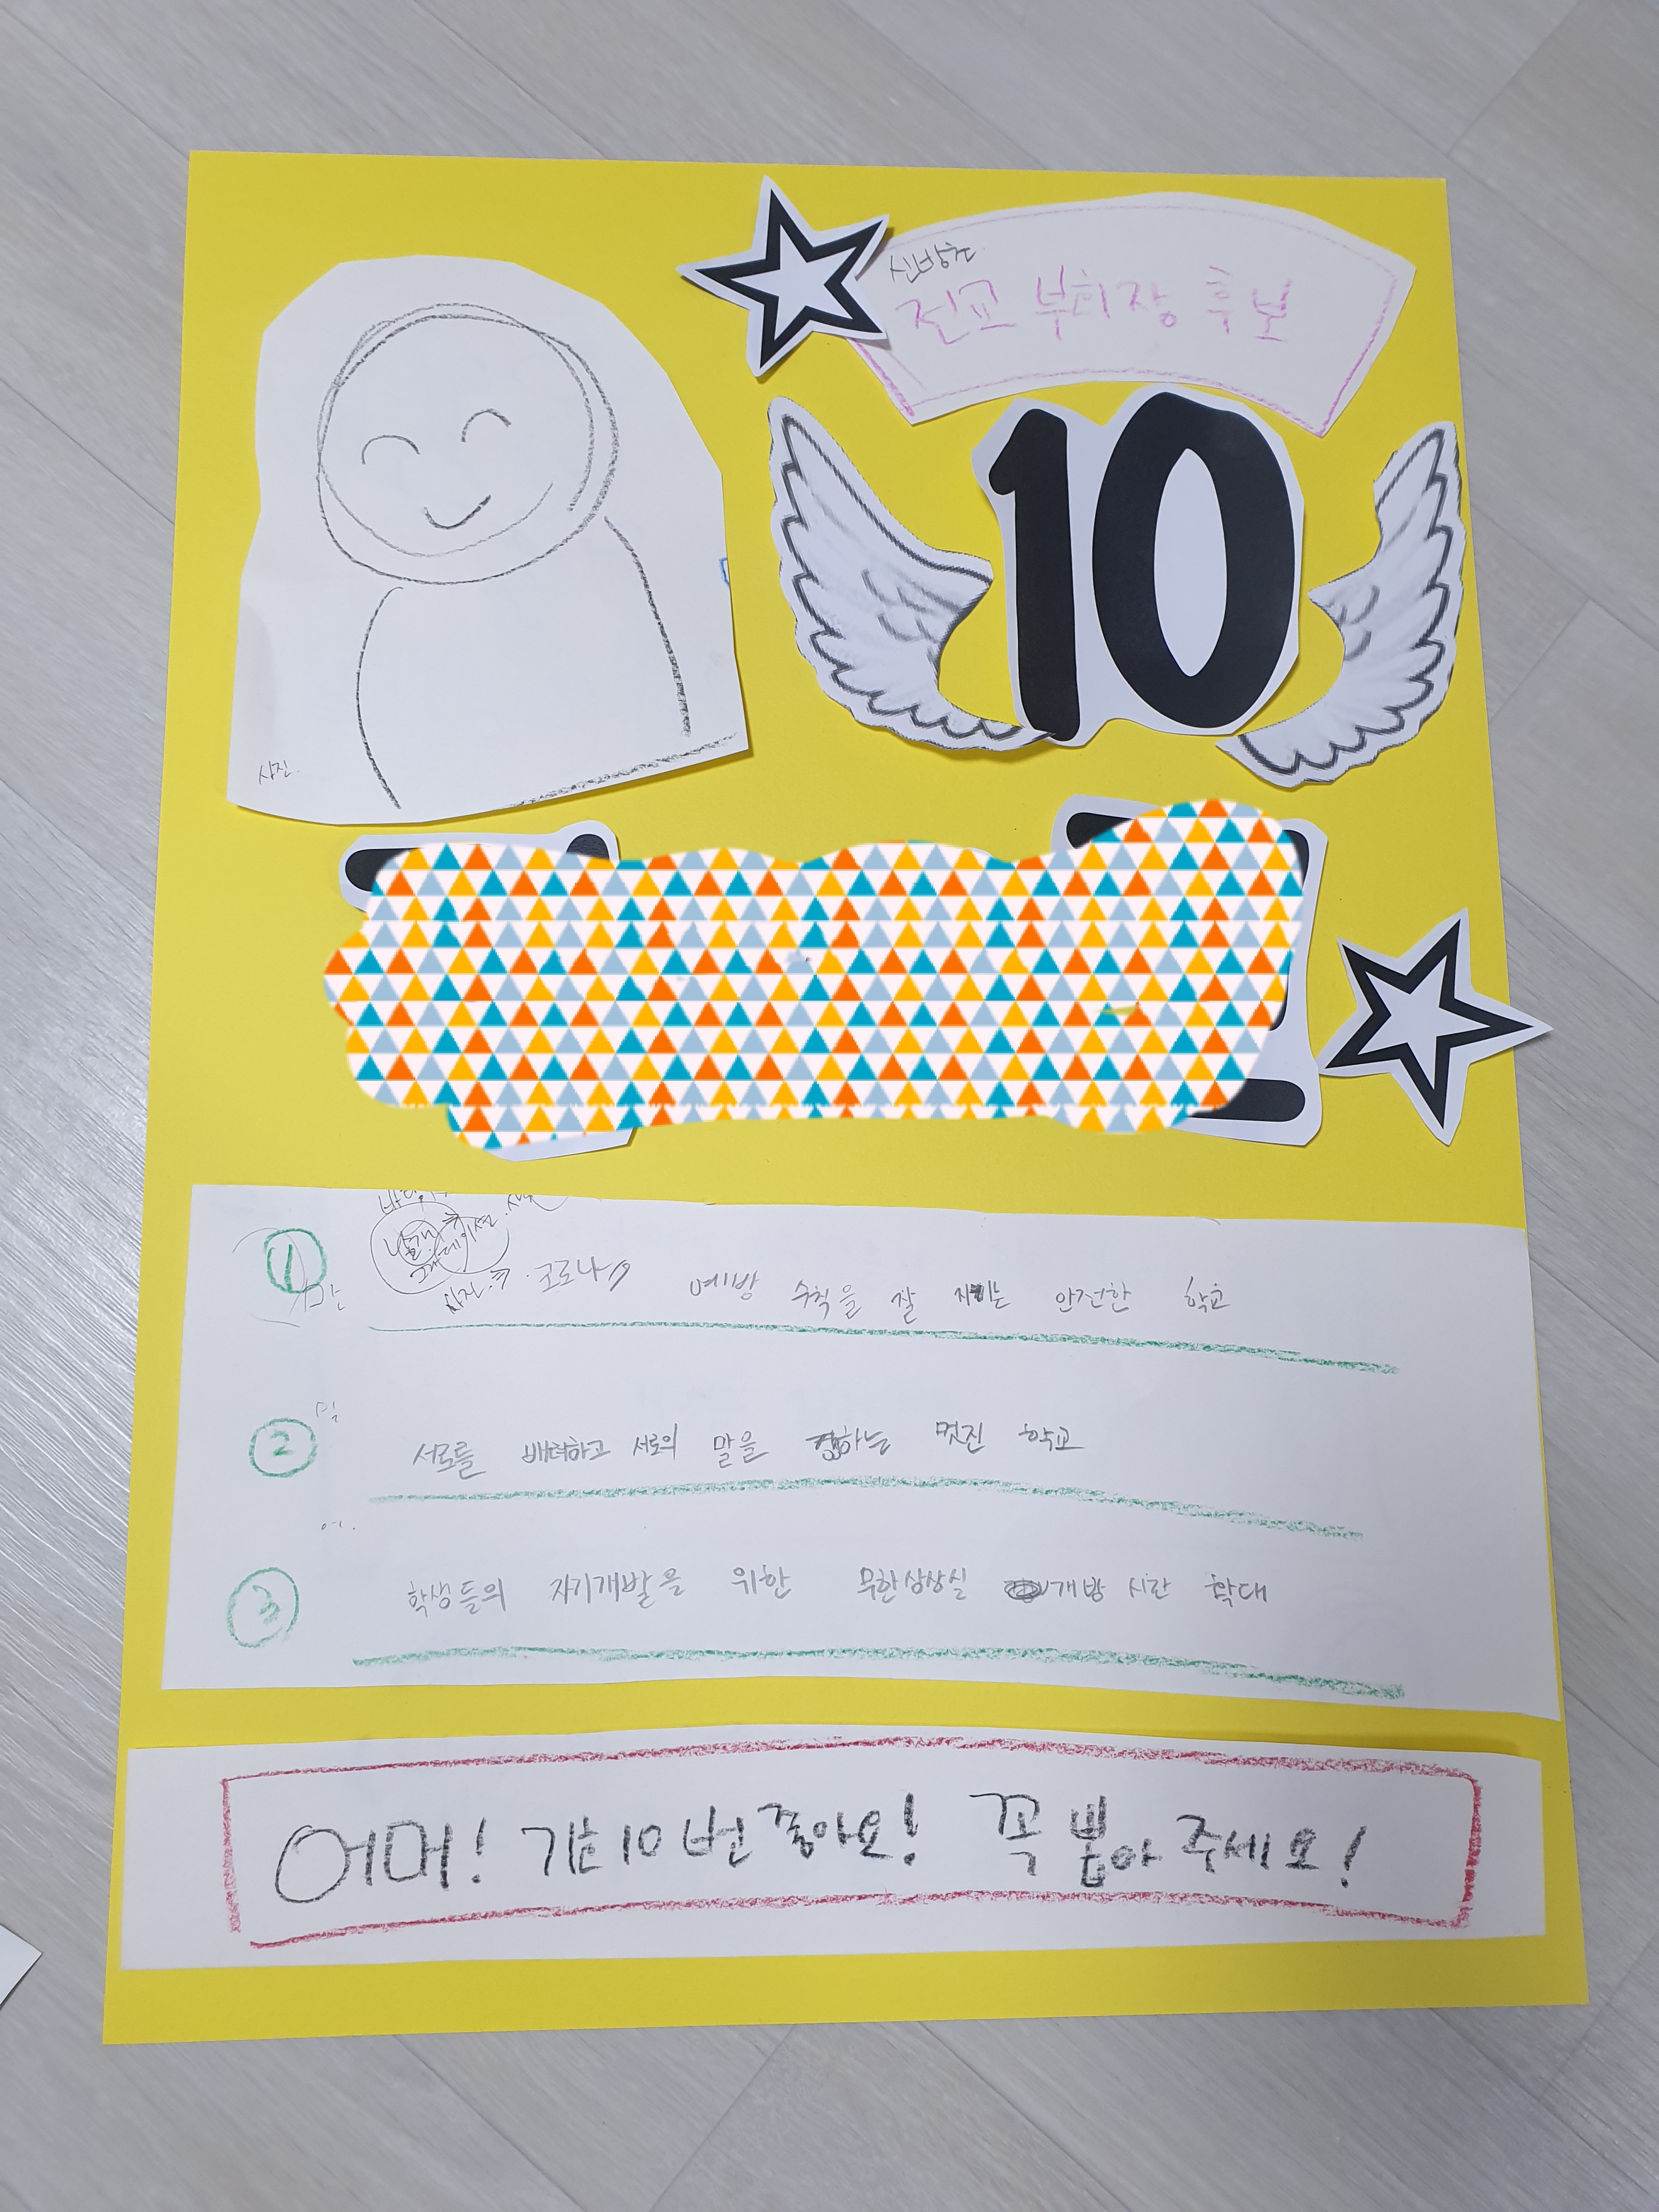 신방초
전교 부회장 후보
10
사진
① 코로나 예방 수칙을 잘 지키는 안전한 학교
② 서로를 배려하고 서로의 말을 하는 멋진 학교
③ 학생들의 자기개발을 위한 무한상상실 개방 시간 확대
어머! 기호 10번 좋아요! 꼭 뽑아주세요!